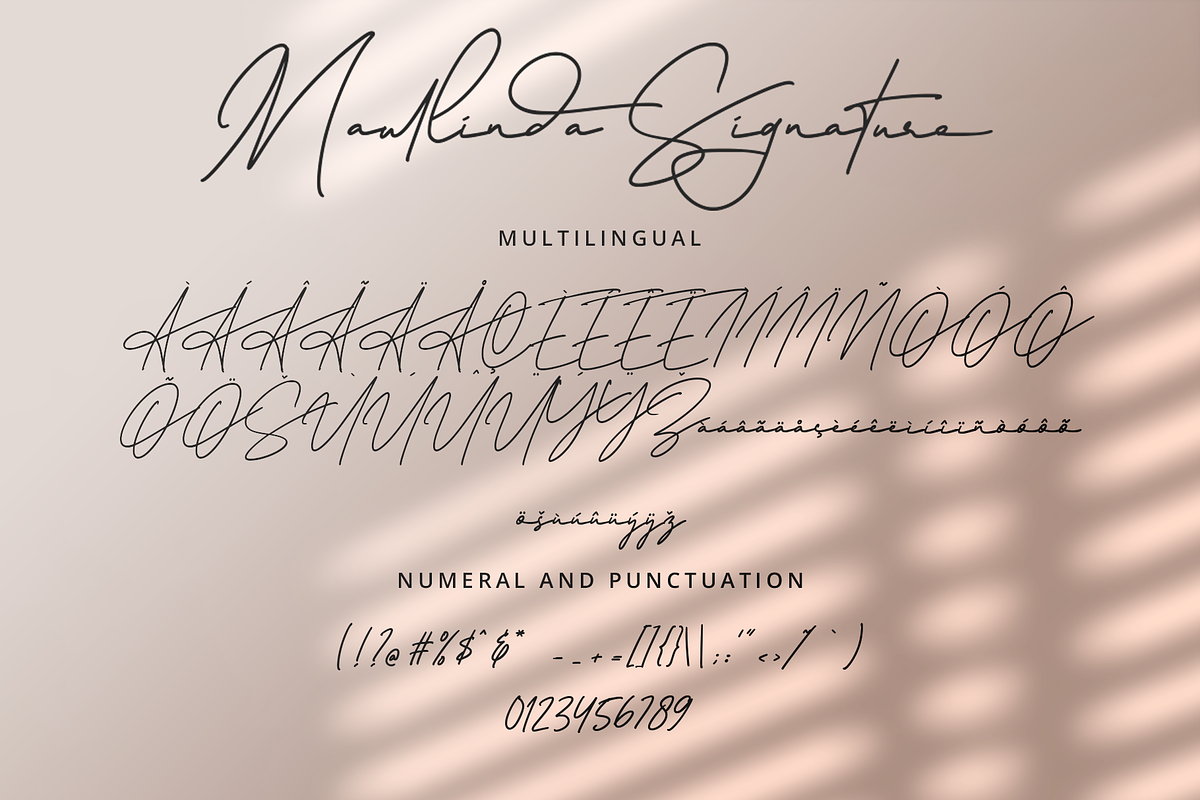 Maullinda Signature
MULTILINGUAL
ÀÁÂÃÄÅÇÈÉÊËÌÍÎÏÑÒÓÔ
ÕÖŠÙÚÛÜÝŸŽàáâãäåçèéêëìíîïñòóôõ
öšùúûüýÿž
NUMERAL AND PUNCTUATION
(!?@#%$^&* -_+=[]{}\|;:'"<>/~`)
0123456789